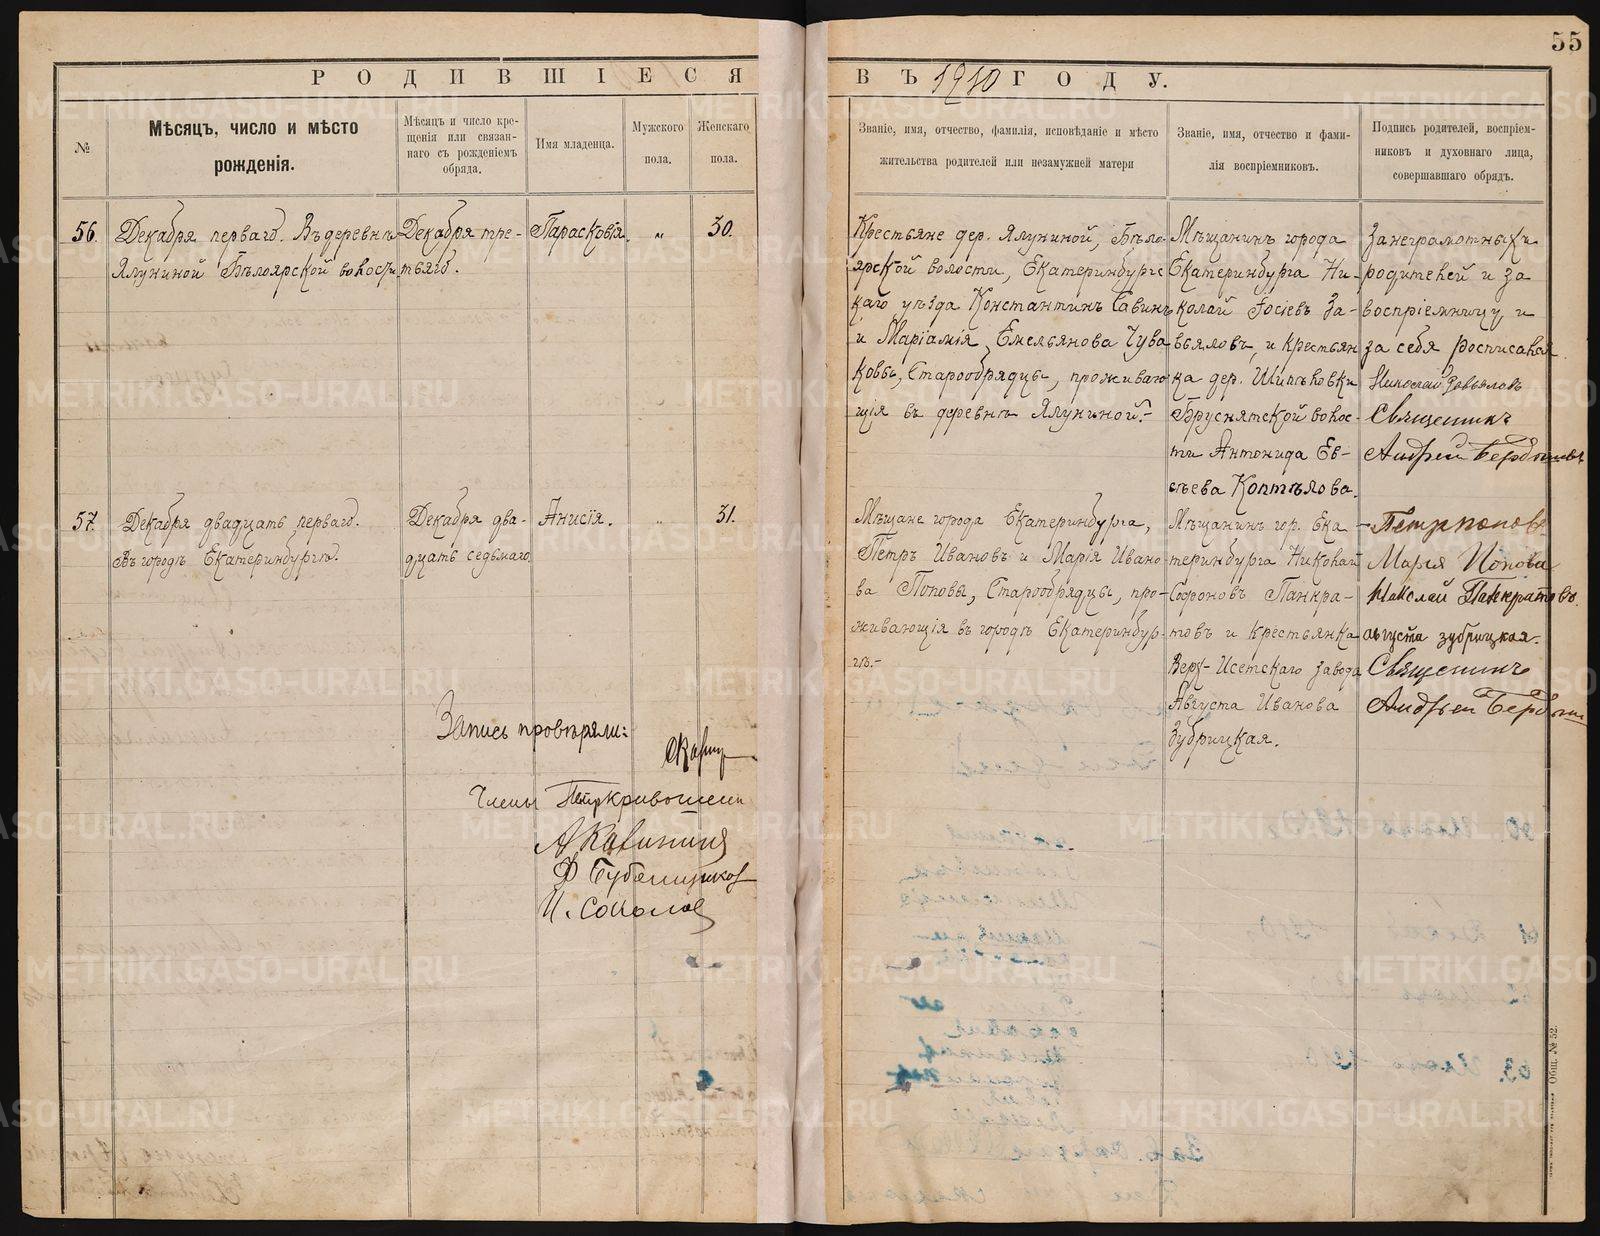 55
РОДИВШІЕСЯ
ВЪ 1910 ГОДУ.
№
Мѣсяцъ, число и мѣсто
рожденія.
Мѣсяцъ и число кре-
щенія или связан-
наго съ рожденіемъ
обряда.
Имя младенца.
Мужского
пола.
Женскаго
пола.
Званіе, имя, отчество, фамилія, исповѣданіе и мѣсто
жительства родителей или незамужней матери
Званіе, имя, отчество и фами-
лія воспріемниковъ.
Подпись родителей, воспріем-
никовъ и духовнаго лица,
совершавшаго обрядъ.
56.
Декабря перваго. Въ деревнѣ
Ялуниной Бѣлоярской волости
Декабря тре-
тьяго.
Парасковія.
„
30.
Крестьяне дер. Ялуниной, Бѣло-
ярской волости, Екатеринбургс
каго уѣзда Константинъ Савинъ
и Маріамія Емельянова Чува
ковы, Старообрядцы, проживаю
щія въ деревнѣ Ялуниной.-
Мѣщанинъ города
Екатеринбурга Ни-
колай Іосіевъ За-
вьяловъ, и крестьян
ка дер. Шипѣловки
Бруснятской волос-
ти Антонида Ев-
сѣева Коптѣлова.
За неграмотныхъ
родителей и за
воспріемницу и
за себя росписался
Николай Завьяловъ
Священникъ
Андрей
57.
Декабря двадцать перваго.
Въ городѣ Екатеринбургѣ.
Декабря два-
дцать седьмаго.
Анисія.
„
31.
Мѣщане города Екатеринбурга,
Петръ Ивановъ и Марія Ивано
ва Поповы, Старообрядцы, про-
живающія въ городѣ Екатеринбур-
гѣ.-
Мѣщанинъ гор. Ека-
теринбурга Николай
Софоновъ Панкра-
товъ и крестьянка
Верх-Исетскаго завода
Августа Иванова
Зубрицкая.
Петр Попов
Мария Попова
Николай Панкратовъ.
августа зубрицкая.
Священникъ
Андрей
Запись провѣряли:
Члены Петр Кривошеин
А Калинин
Ф Бубенщиков
И. Соколов
Общ. № 52.
METRIKI.GASO-URAL.RU